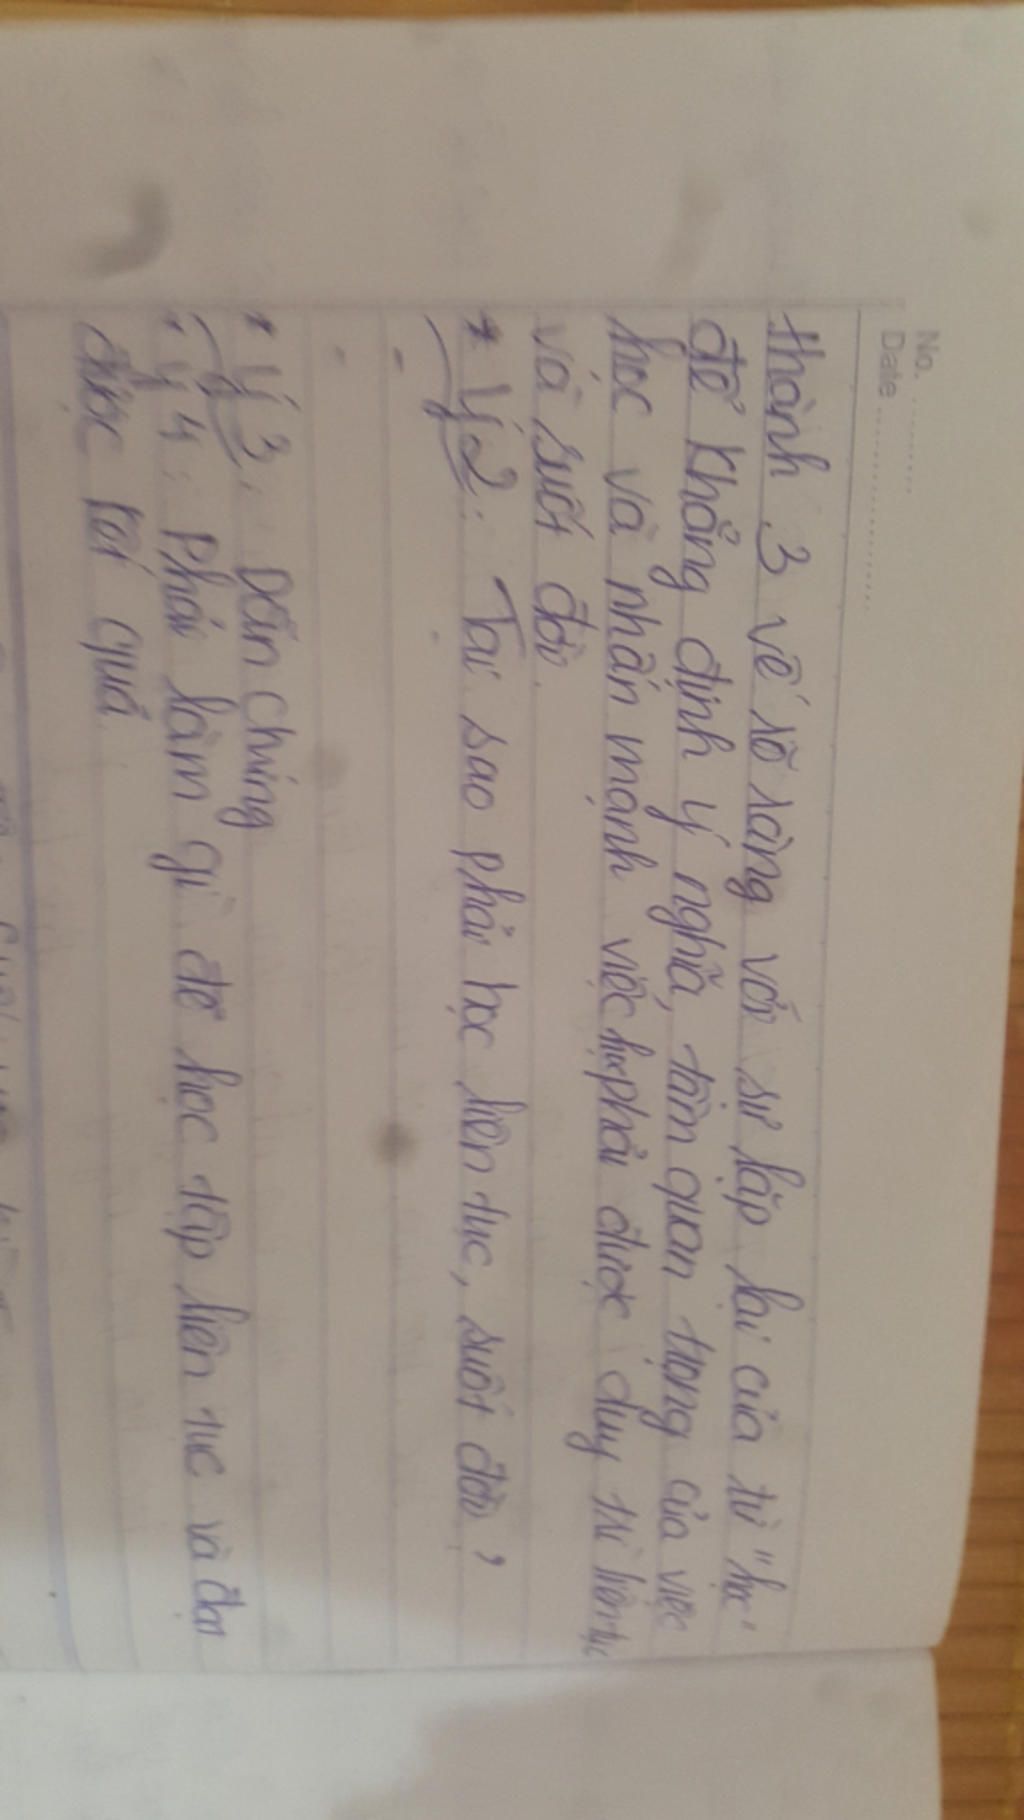 No. ............
Date ........................
thành 3 vế rõ ràng với sự lặp lại của từ "học"
để khẳng định ý nghĩa, tầm quan trọng của việc
học và nhấn mạnh việc học phải được duy trì liên tục
và suốt đời.
* Ý 2: Tại sao phải học liên tục, suốt đời?
-
-
* Ý 3: Dẫn chứng
* Ý 4: Phải làm gì để học tập liên tục và đạt
được kết quả